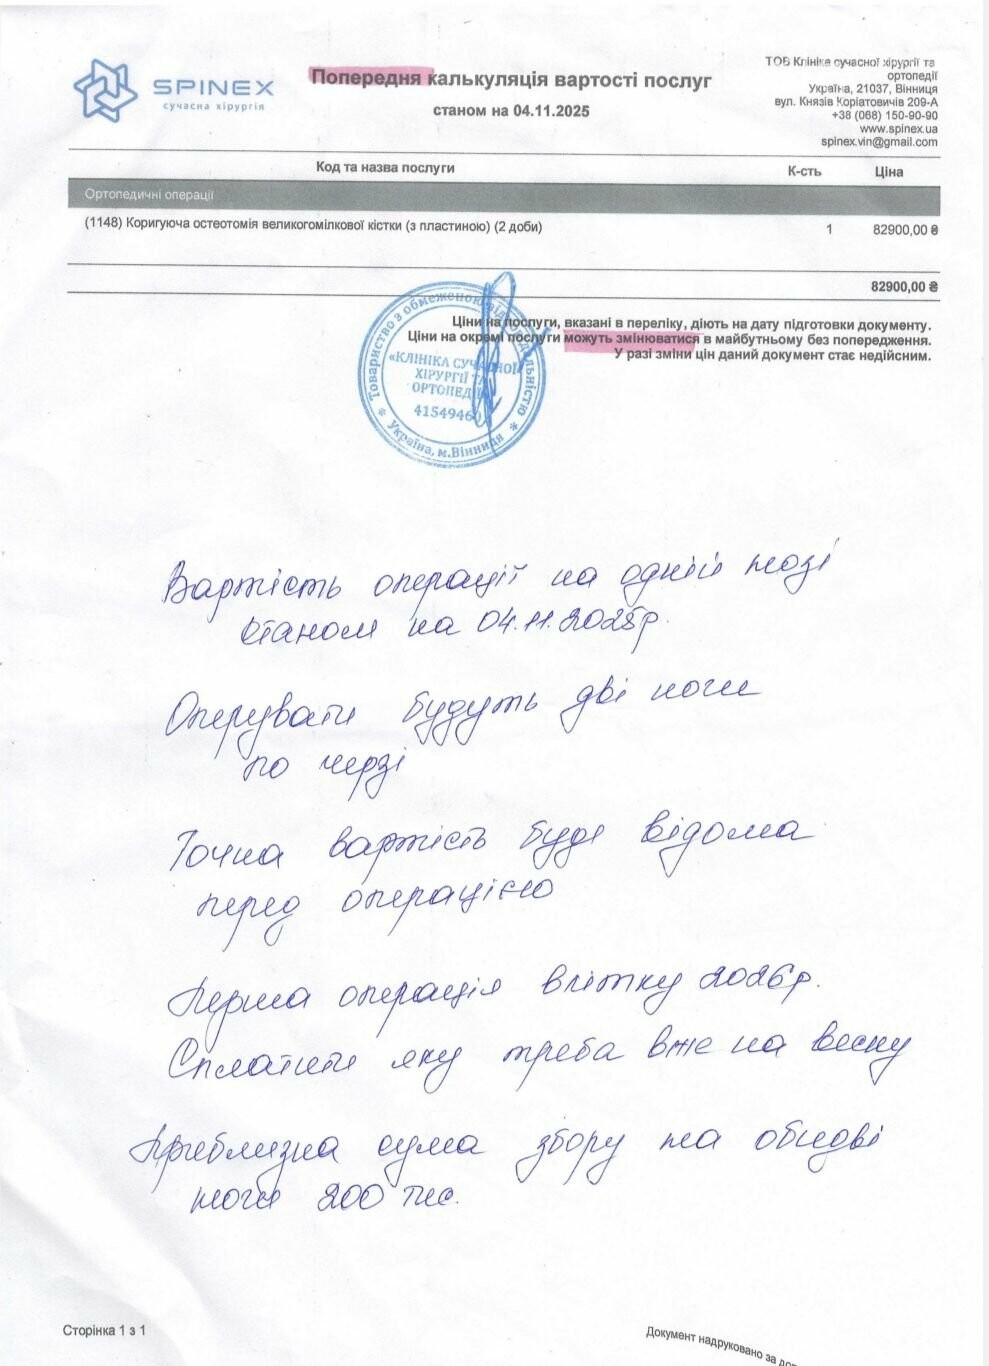 SPINEX
сучасна хірургія
Попередня калькуляція вартості послуг
станом на 04.11.2025
ТОВ Клініка сучасної хірургії та
ортопедії
Україна, 21037, Вінниця
вул. Князів Коріатовичів 209-А
+38 (068) 150-90-90
www.spinex.ua
spinex.vin@gmail.com
Код та назва послуги К-сть Ціна
Ортопедичні операції
(1148) Коригуюча остеотомія великогомілкової кістки (з пластиною) (2 доби) 1 82900,00 ₴
82900,00 ₴
Ціни на послуги, вказані в переліку, діють на дату підготовки документу.
Ціни на окремі послуги можуть змінюватися в майбутньому без попередження.
У разі зміни цін даний документ стає недійсним.
Товариство з обмеженою відповідальністю
«КЛІНІКА СУЧАСНОЇ
ХІРУРГІЇ ТА
ОРТОПЕДІЇ»
41549460
* Україна, м.Вінниця *
Вартість операції на одній нозі
станом на 04.11.2025р.
Оперувати будуть дві ноги
по черзі
Точна вартість буде відома
перед операцією
Перша операція влітку 2026р.
Сплатити яку треба вже на весну
Приблизна сума збору на обидві
ноги 200 тис.
Сторінка 1 з 1
Документ надруковано за